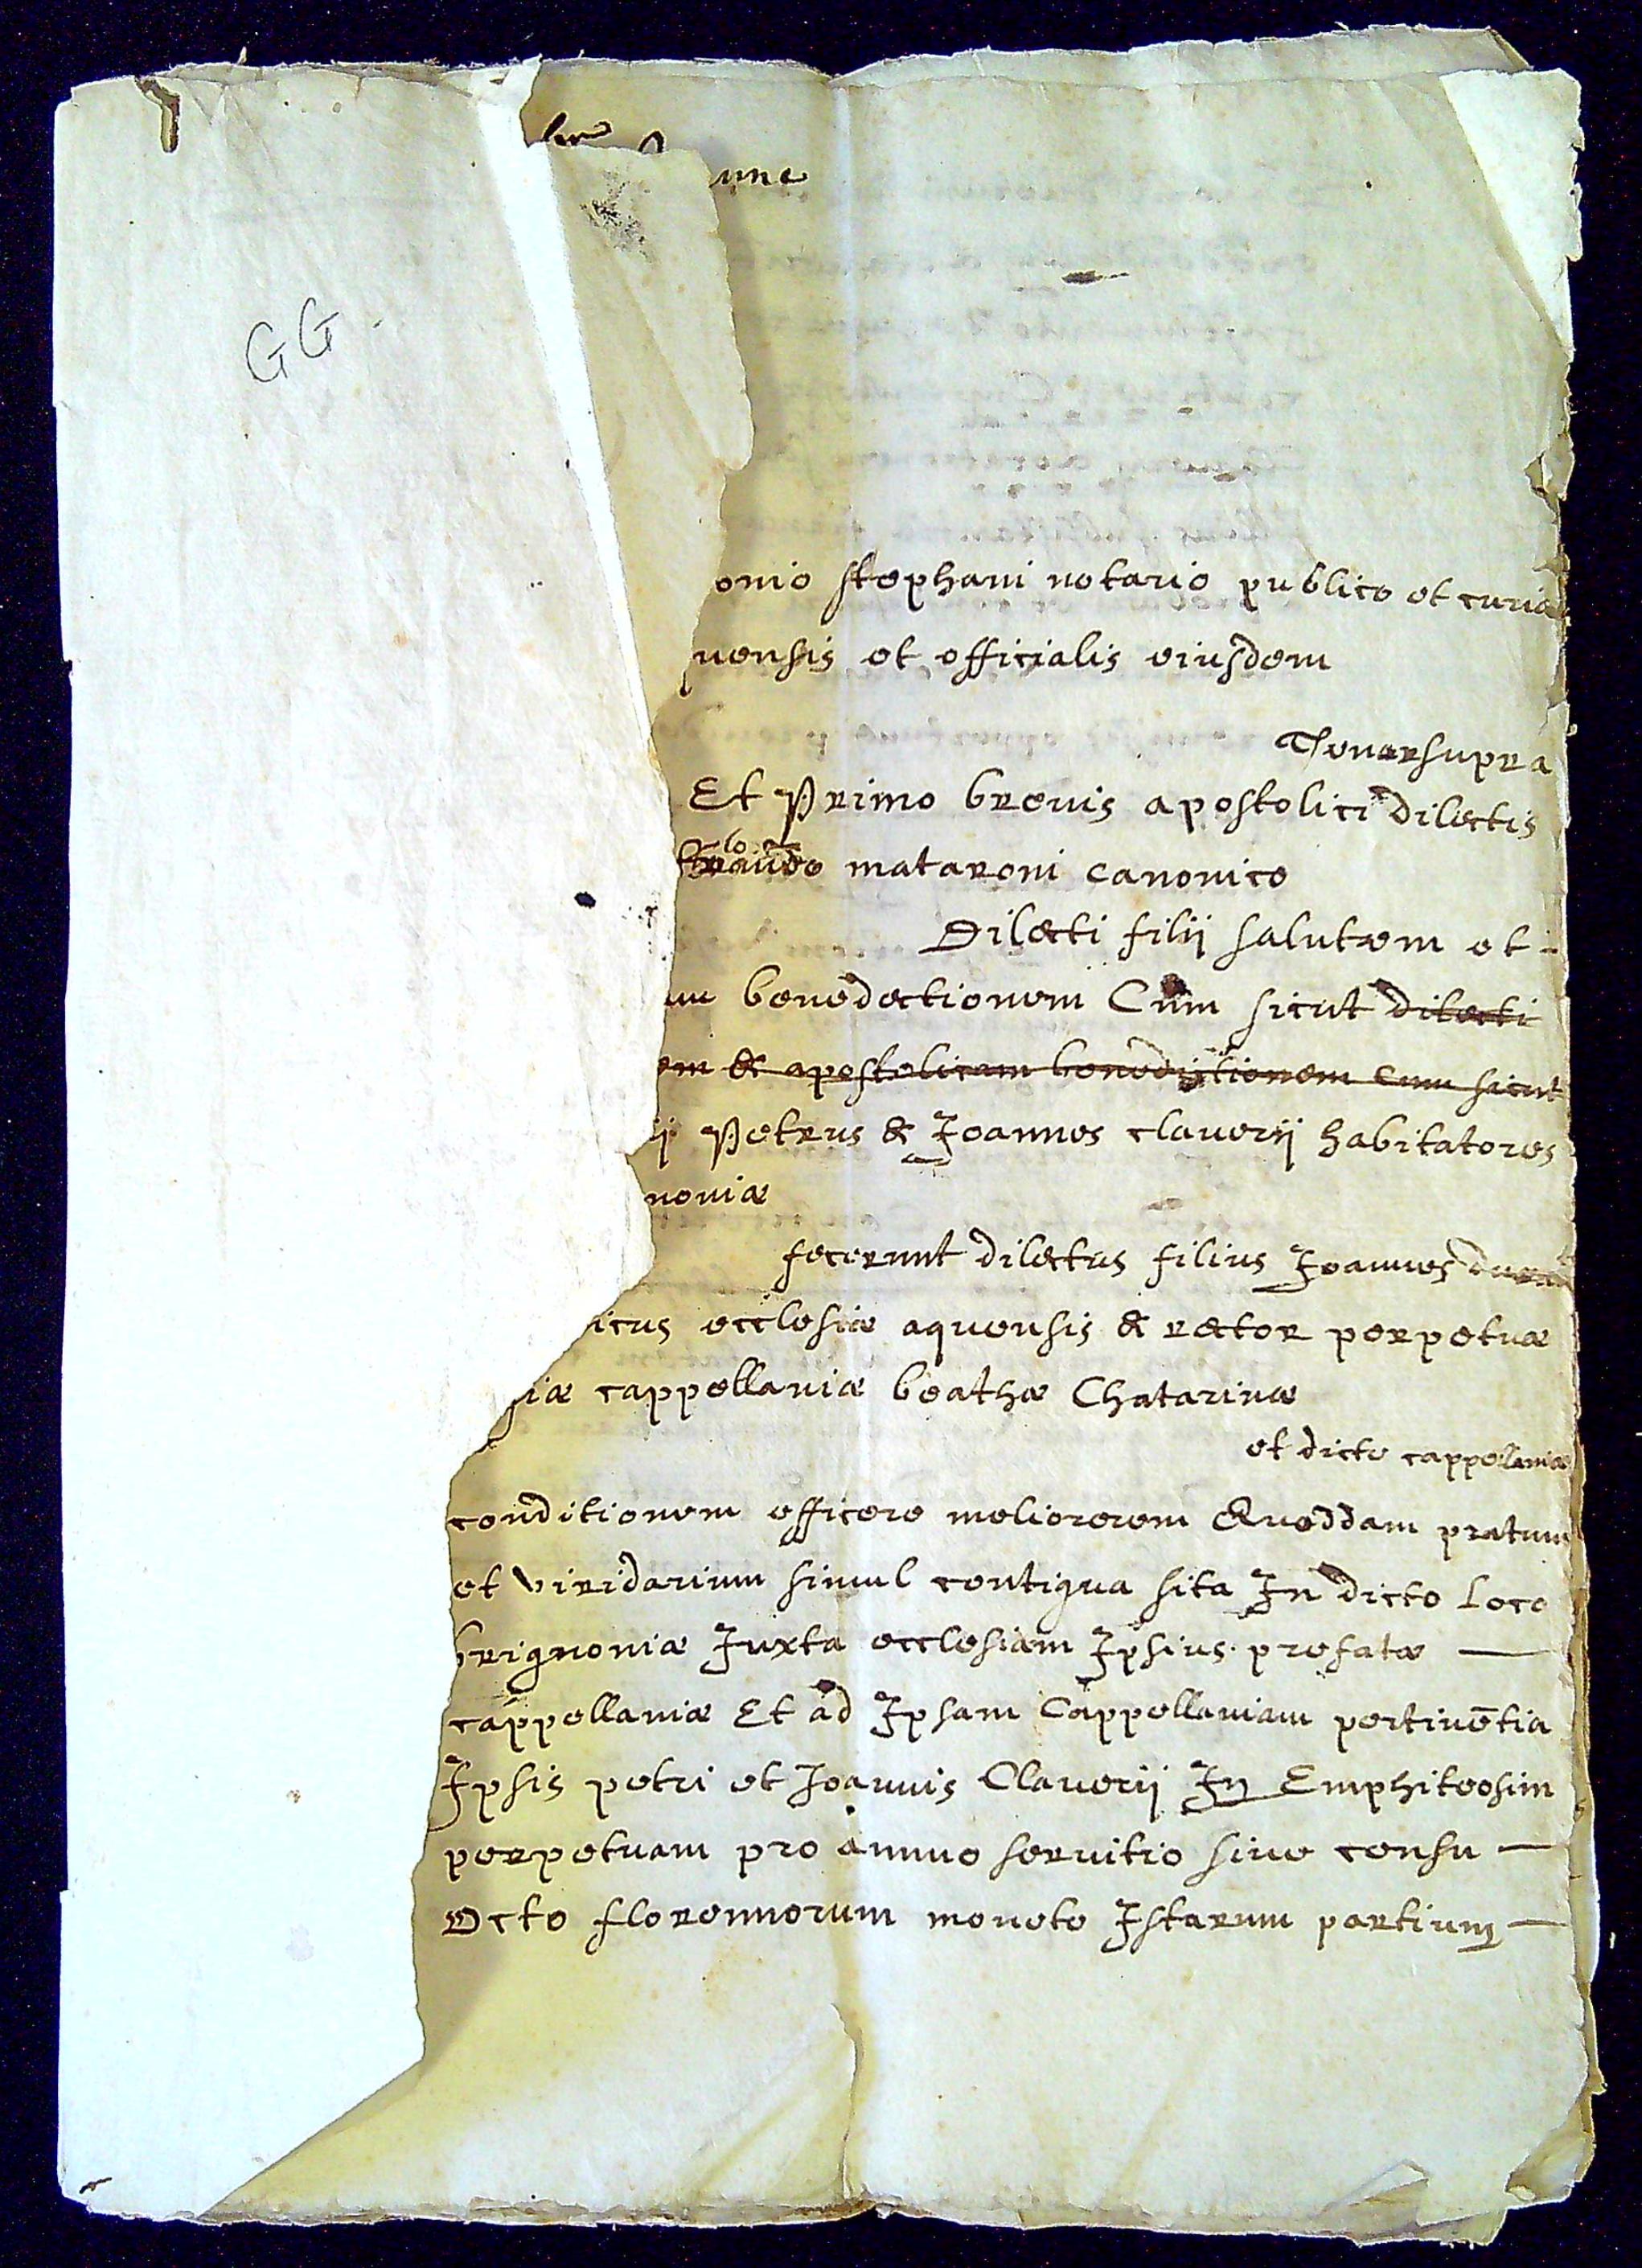 GG
onio stephani notario publico et curiæ
uensis et officialis eiusdem
Tenor supra
Et Primo breuis apostolici dilectis
mataroni canonico
Dilecti filij salutem et
benedectionem Cum sicut dilecti
em & apostolicam benedictionem cum sicut
ij Petrus & Joannes clauerij habitatores
noniæ
fecerunt dilectus filius Joannes
icus ecclesiæ aquensis & rector perpetuæ
iæ cappellaniæ beathæ Chatarinæ
et dicte cappellaniæ
conditionem efficere meliorerem Quoddam pratum
et viridarium simul contigua sita In dicto loco
brignoniæ Juxta ecclesiam Ipsius prefatæ —
cappellaniæ Et ad Ipsam Cappellaniam pertinētia
Ipsis petri et Joannis Clauerij In Emphiteosim
perpetuam pro annuo seruitio siue censu —
Octo florennorum monete Istarum partium —